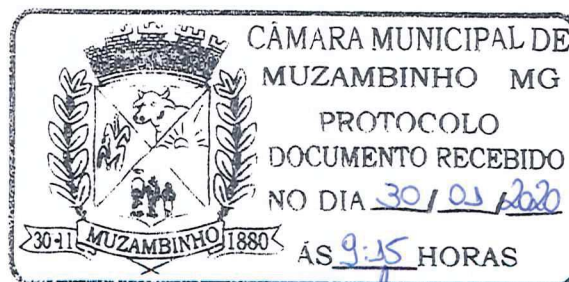 CÂMARA MUNICIPAL DE
MUZAMBINHO MG
PROTOCOLO
DOCUMENTO RECEBIDO
NO DIA 30/01/2020
ÁS 9:15 HORAS
30-11 MUZAMBINHO 1880